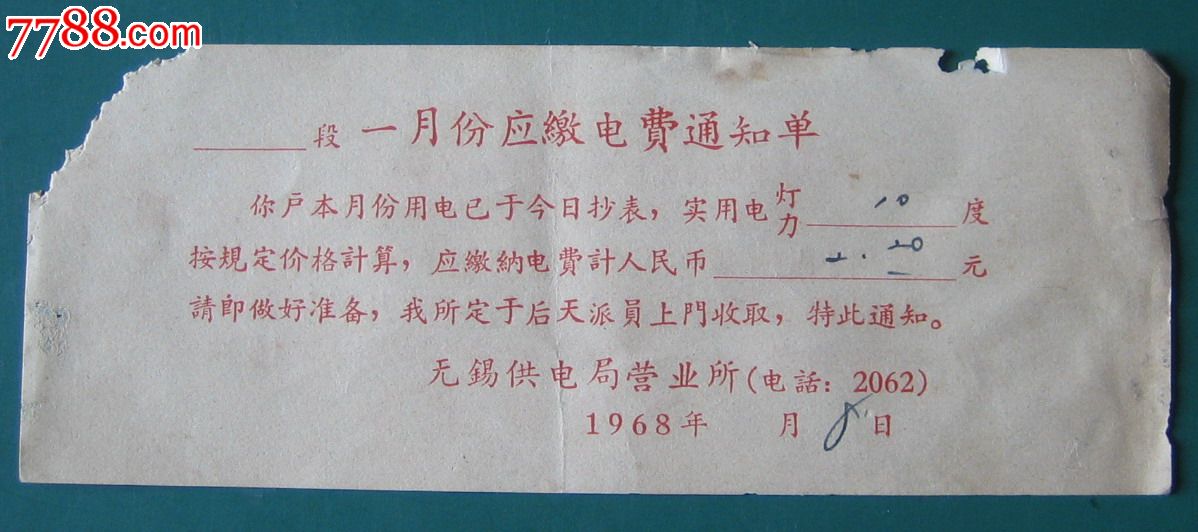 7788.com
段 一月份应繳电費通知单
你戶本月份用电已于今日抄表，实用电 灯力 10 度
按規定价格計算，应繳納电費計人民币 2.20 元
請即做好准备，我所定于后天派員上門收取，特此通知。
无錫供电局营业所(电話：2062)
1968年 月 8 日